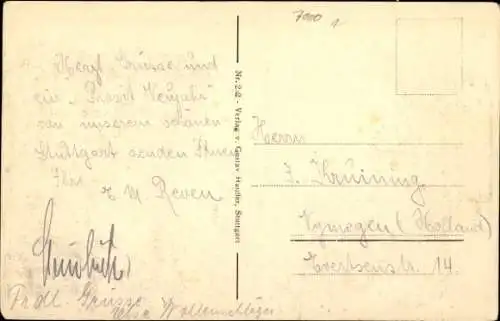 7000
Herzl. Grüsse und
ein "Prosit Neujahr"
von unserem schönen
Stuttgart senden Ihnen
Ihre
E. M. Reven
Frdl. Grüsse
Nr. 242 - Verlag v. Gustav Haufler, Stuttgart
Herrn
J. Kruining
Nymegen (Holland)
Evertsenstr. 14.